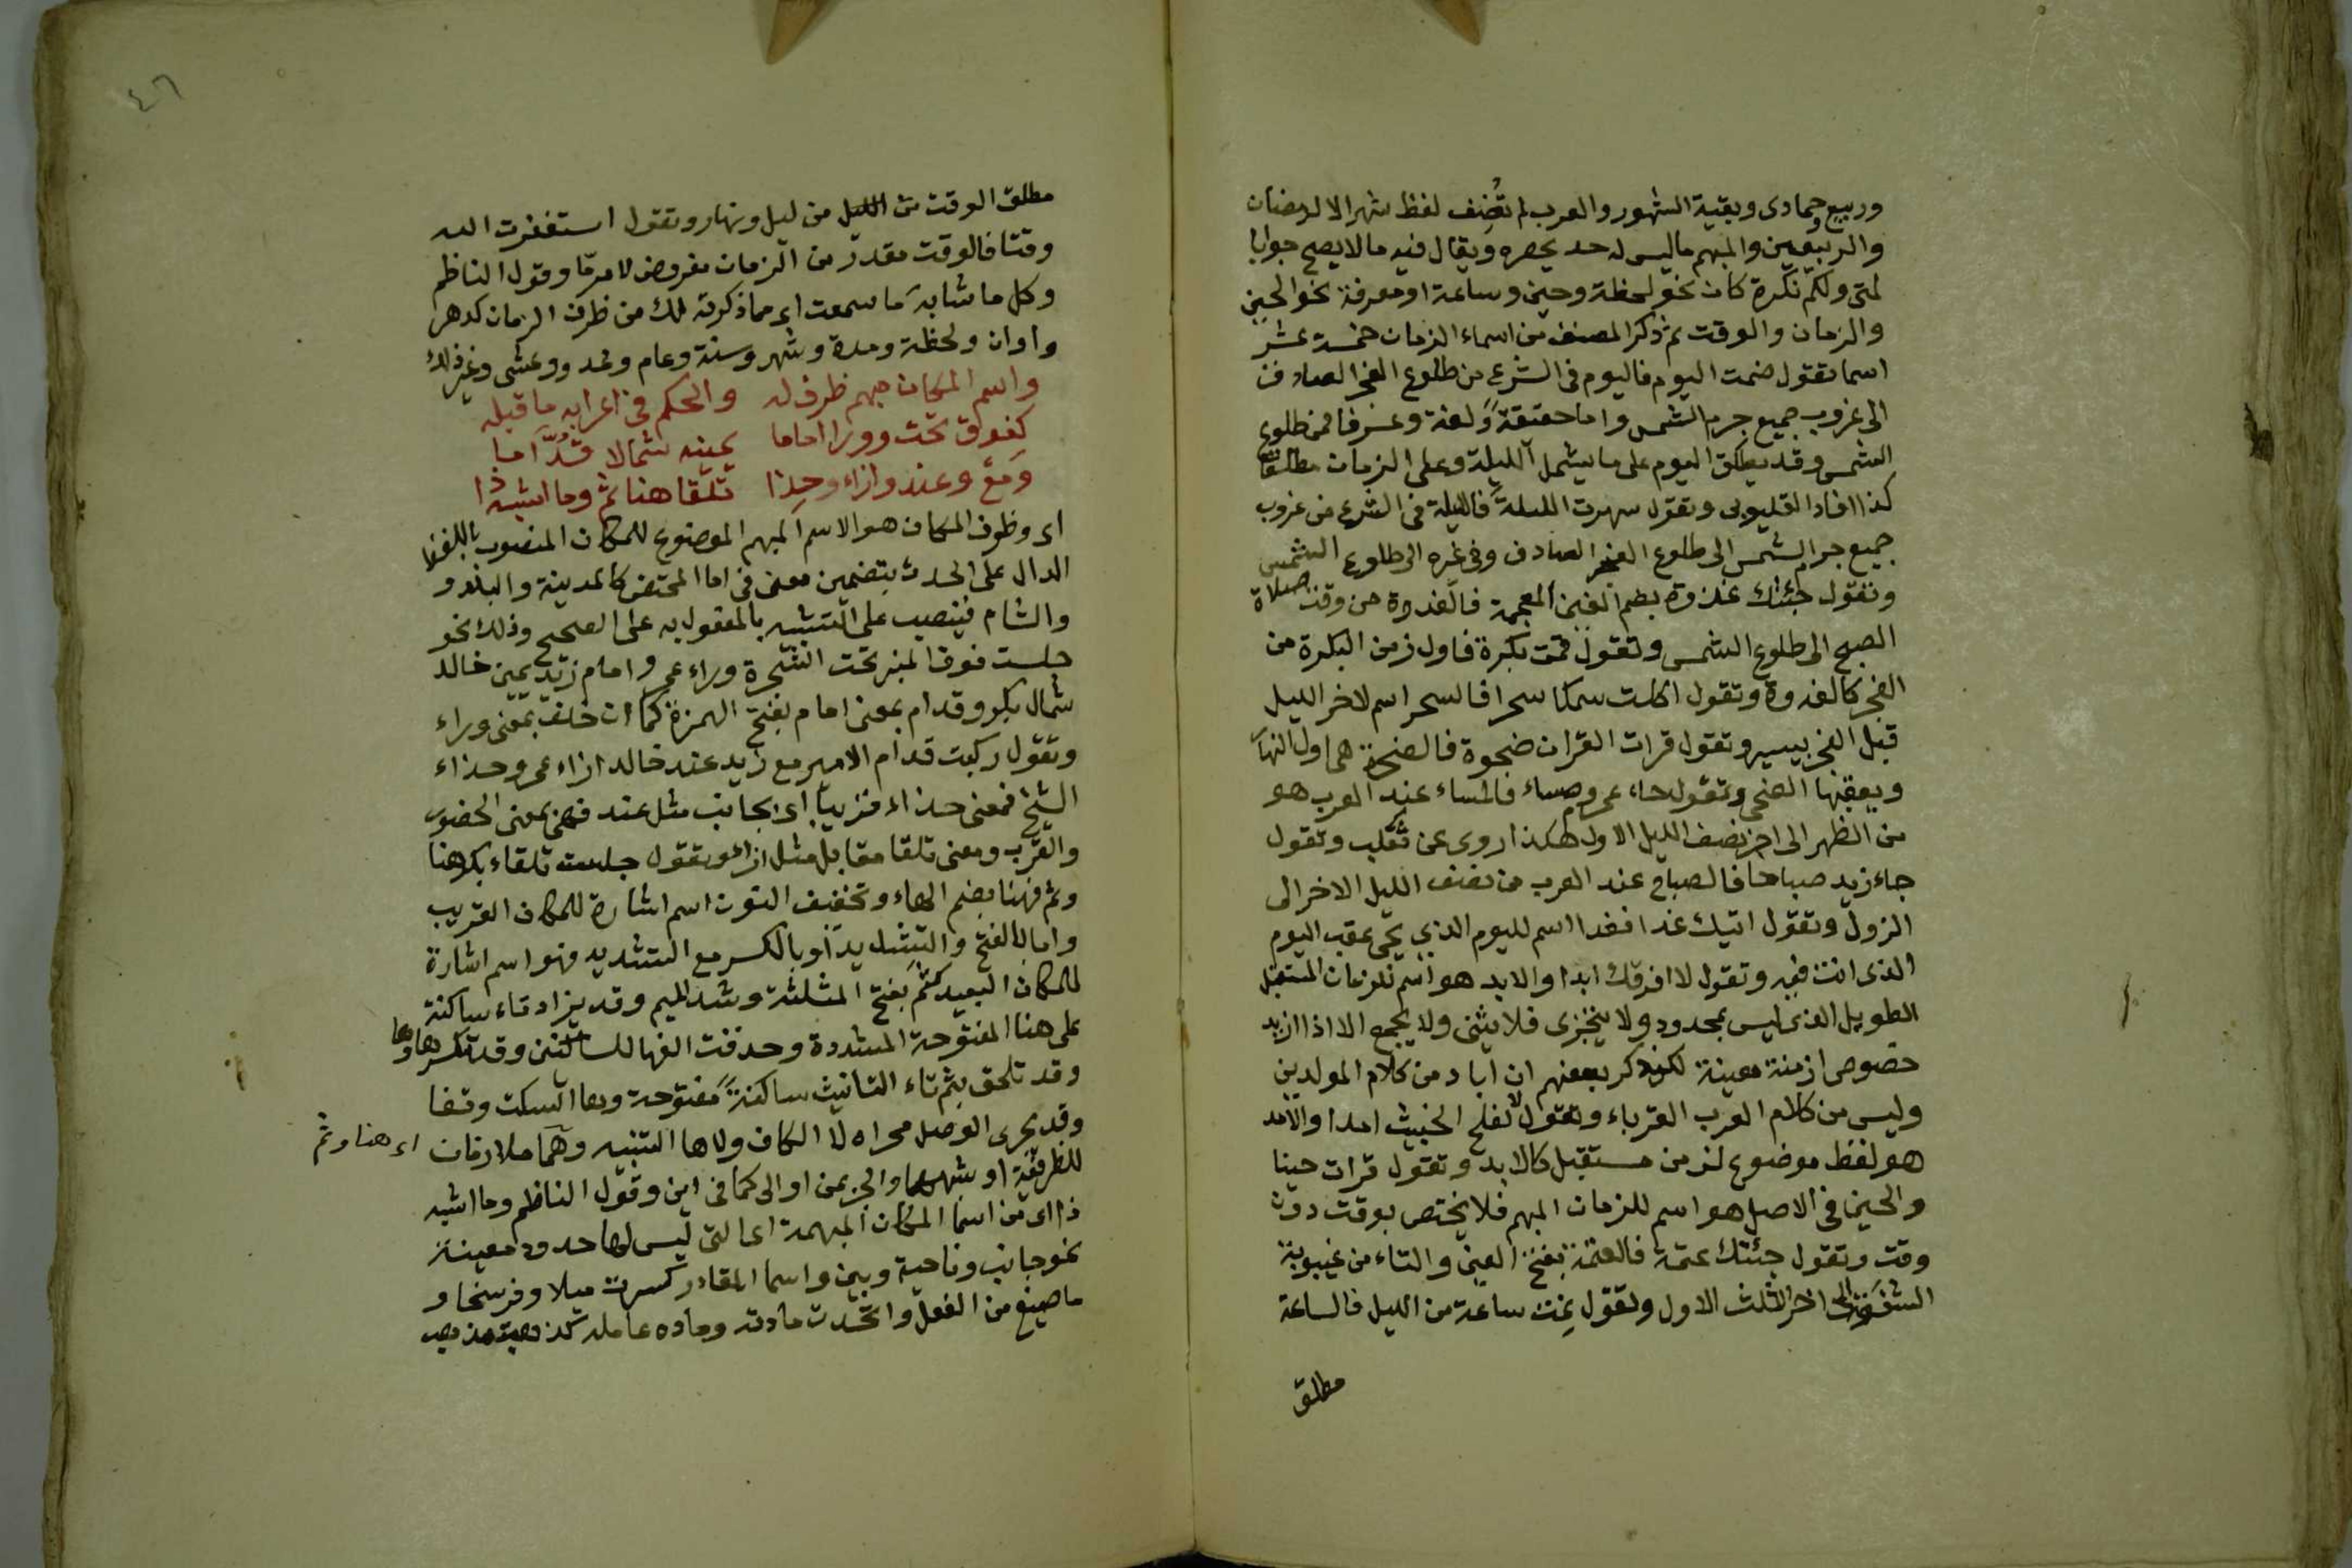 وربيع وجمادى وبقية الشهور والعرب لم تُضِف لفظ شهر الا لرمضان
والربيعين والمبهم ما ليس له حد يحصره ويقال فيه ما لا يصح جوابا
لمتى ولكم نكرة كان نحو لحظة وحين وساعة او معرفة نحو الحين
والزمان والوقت ثم ذكر المصنف من اسماء الزمان خمسة عشر
اسما تقول صمت اليوم فاليوم فى الشرع من طلوع الفجر الصادق
الى غروب جميع جرم الشمس واما حقيقة ولغة وعرفا فمن طلوع
الشمس وقد يطلق اليوم على ما يشمل الليلة وعلى الزمان مطلقا
كذا افاد القليوبى وتقول سهرت الليلة فالليلة فى الشرع من غروب
جميع جرم الشمس الى طلوع الفجر الصادق وفى غيره الى طلوع الشمس
وتقول جئتك غدوة بضم الغين المعجمة فالغدوة من وقت صلاة
الصبح الى طلوع الشمس وتقول قمت بكرة فاول زمن البكرة من
الفجر كالغدوة وتقول اكلت سمكا سحرا فالسحر اسم لاخر الليل
قبل الفجر بيسير وتقول قرات القران ضحوة فالضحوة هى اول النهار
ويعقبها الضحى وتقول جاء عمرو مساء فالمساء عند العرب هو
من الظهر الى اخر نصف الليل الاول هكذا روى عن ثعلب وتقول
جاء زيد صباحا فالصباح عند العرب من نصف الليل الاخر الى
الزول وتقول اتيك غدا فغدا اسم لليوم الذى يجئ عقب اليوم
الذى انت فيه وتقول لا افرقك ابدا والابد هو اسم للزمان المستقبل
الطويل الذى ليس بمحدود ولا يتجزى فلا يثنى ولا يجمع الا اذا اريد
خصوص ازمنة معينة لكن ذكر بعضهم ان اباد من كلام المولدين
وليس من كلام العرب العرباء وتقول لا يفلح الخبيث امدا والامد
هو لفظ موضوع لزمن مستقبل كالابد وتقول قرات حينا
والحين فى الاصل هو اسم للزمان المبهم فلا يختص بوقت دون
وقت وتقول جئتك عتمة فالعتمة بفتح العين والتاء من غيبوبة
الشفق الى اخر الثلث الاول وتقول نمت ساعة من الليل فالساعة
مطلق
٤٦
مطلق الوقت من الليل من ليل ونهار وتقول استغفرت الله
وقتا فالوقت مقدر من الزمان مفروض لامر ما وقول الناظم
وكل ما شابه ما سمعت اى مما ذكرته لك من ظرف الزمان كدهر
واوان ولحظة ومدة وشهر وسنة وعام وغدو وعشى وغير ذلك
واسم المكان مبهم ظرف له والحكم فى اعرابه ما قبله
كفوق تحت وورا اماما يمينه شمالا قدّاما
ومع وعند وازاء وحذا تلقا هنا ثم وما اشبه ذا
اى وظرف المكان هو الاسم المبهم الموضوع للمكان المنصوب باللفظ
الدال على الحدث بتضمين معنى فى اما المختص كالمدينة والبلد و
والشام فينصب على التشبيه بالمفعول به على الصحيح وذلك نحو
جلست فوق المنبر تحت الشجرة وراء عمر وامام زيد يمين خالد
شمال بكر وقدام بمعنى امام بفتح الهمزة كما ان خلف بمعنى وراء
وتقول ركبت قدام الامير مع زيد عند خالد ازاء عمر وحذاء
الشيخ فمعنى حذاء قريبا اى بجانب مثل عند فهى بمعنى الحضور
والقرب ومعنى تلقا مقابل مثل ازاء وتقول جلست تلقاء بكر هنا
وثم فهنا بضم الهاء وتخفيف النون اسم اشارة للمكان القريب
واما بالفتح والتشديد او بالكسر مع التشديد فهو اسم اشارة
للمكان البعيد كثم بفتح المثلثة وشد الميم وقد يزاد تاء ساكنة
على هنا المفتوحة المشددة وحذفت الفها للساكنين وقد تكسر هاوها
وقد تلحق بثم تاء التانيث ساكنة مفتوحة وها السكت وقفا
وقد يجرى الوصل مجراه لا الكاف ولا ها التنبيه وهما ملازمان اى هنا وثم
للظرفية او شبهها والجر بمن او الى كما فى اين وقول الناظم وما اشبه
ذا اى من اسما المكان المبهمة اى التى ليس لها حدود معينة
نحو جانب وناحية وبين واسما المقادر كسرت ميلا وفرسخا و
ما صيغ من الفعل واتحدت مادته ومادة عامله كذهبت مذهب